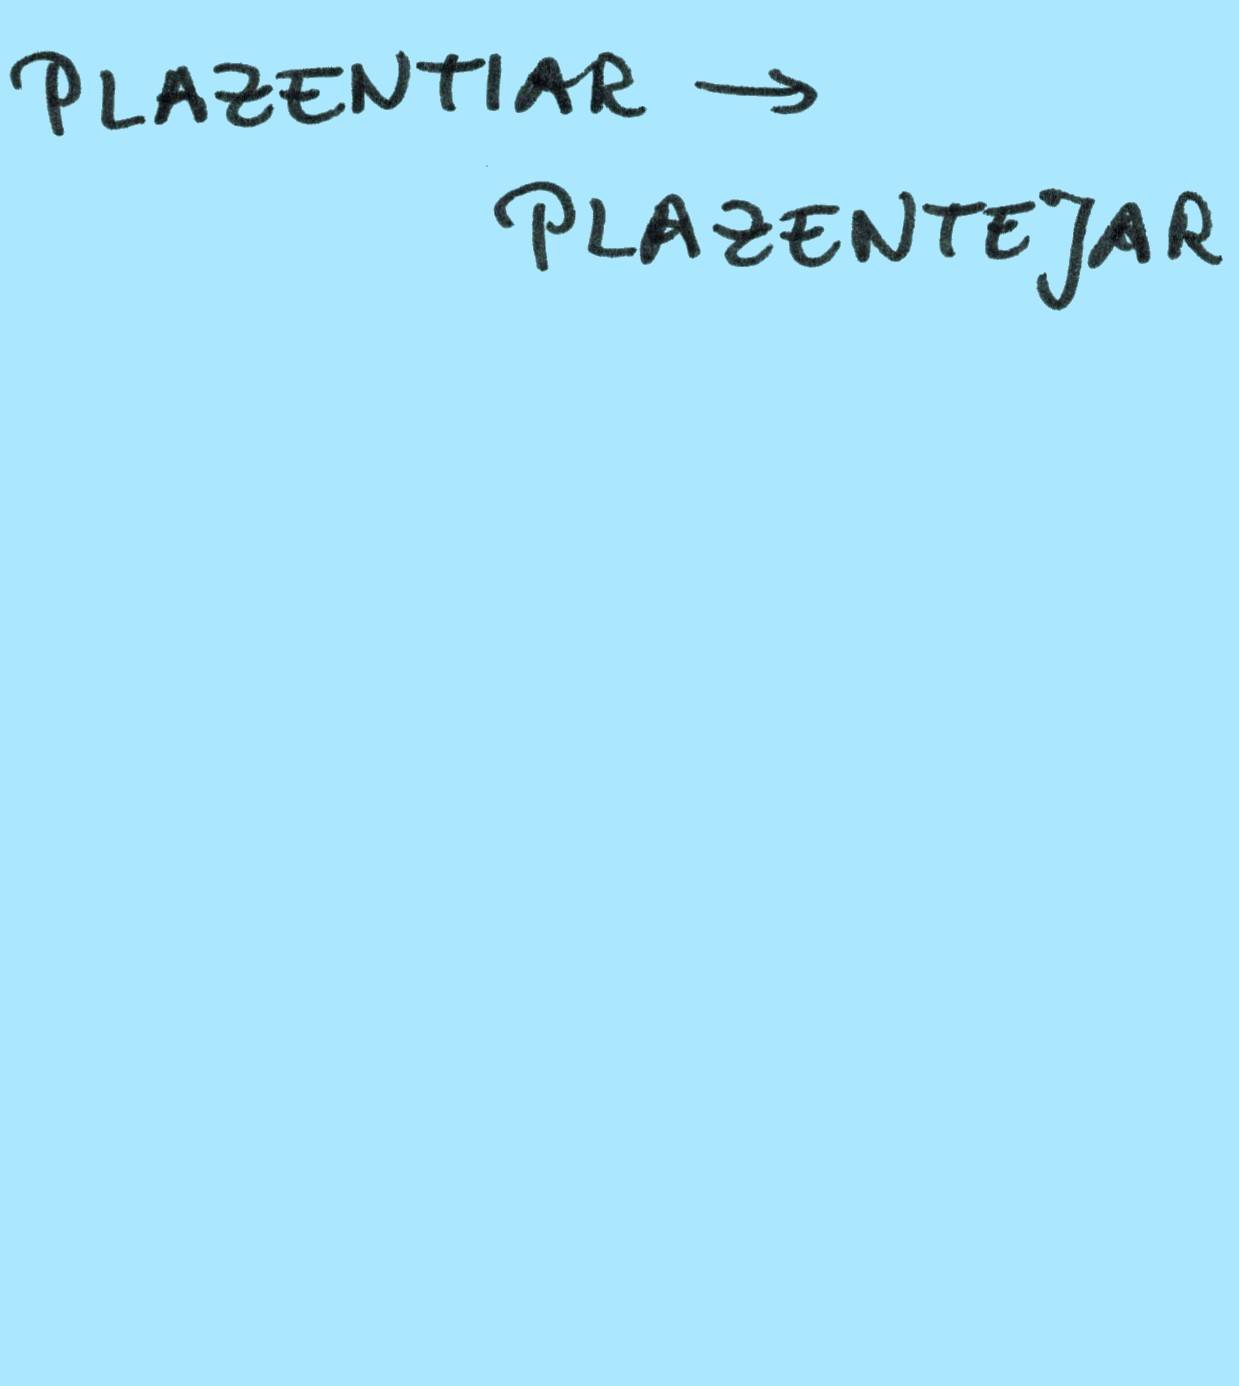 PLAZENTIAR →
PLAZENTEJAR